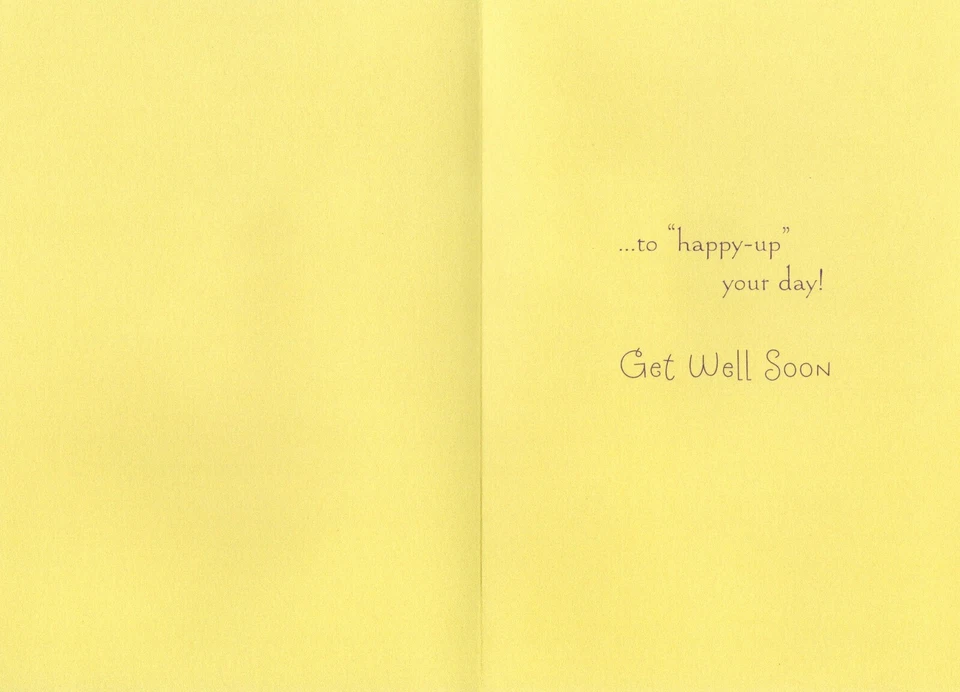 ...to “happy-up”
your day!
Get Well Soon